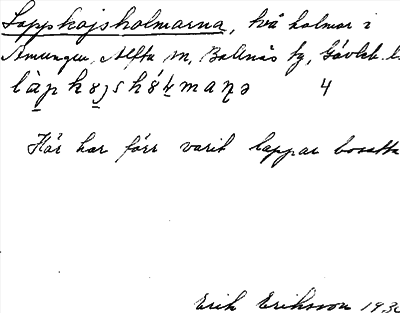 Lappkojsholmarna, två holmar i
Amungen, Alfta sn, Bollnäs tg, Gävleb. l
làpkojshólmana 4
Här har förr varit lappar bosatta
Erik Eriksson 1930